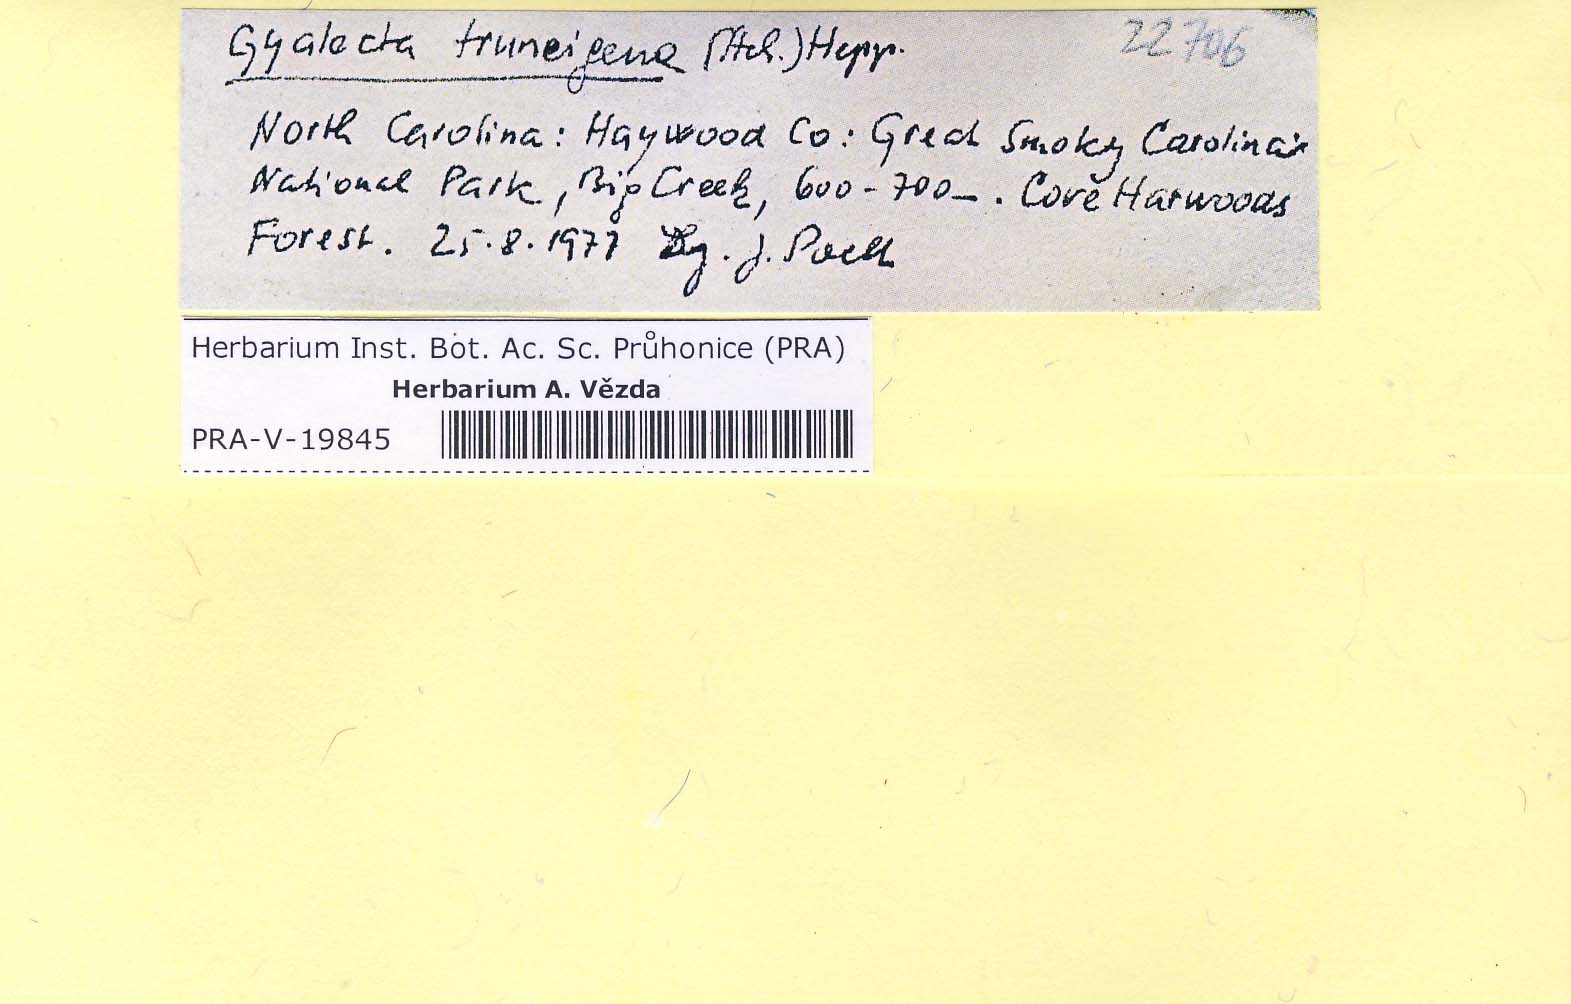 Gyalecta truncigena (Ach.) Hepp. 22706
North Carolina: Haywood Co: Great Smoky Carolina's
National Park, Big Creek, 600-700 m. Cove Harwoods
Forest. 25.8.1977 Lg. J. Poelt
Herbarium Inst. Bot. Ac. Sc. Průhonice (PRA)
Herbarium A. Vězda
PRA-V-19845